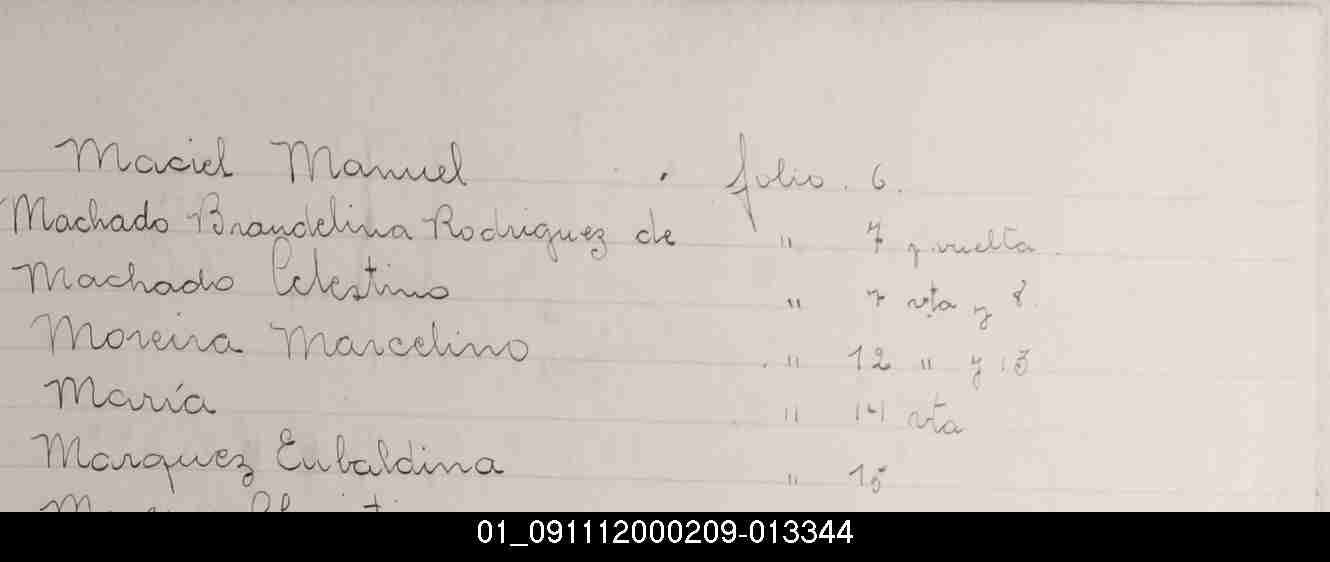 Maciel Manuel . folio . 6.
Machado Brandelina Rodriguez de " 7 y vuelta
Machado Celestino " 7 vta y 8.
Moreira Marcelino " 12 " y 13
María " 14 vta
Marquez Eubaldina " 15
01_091112000209-013344